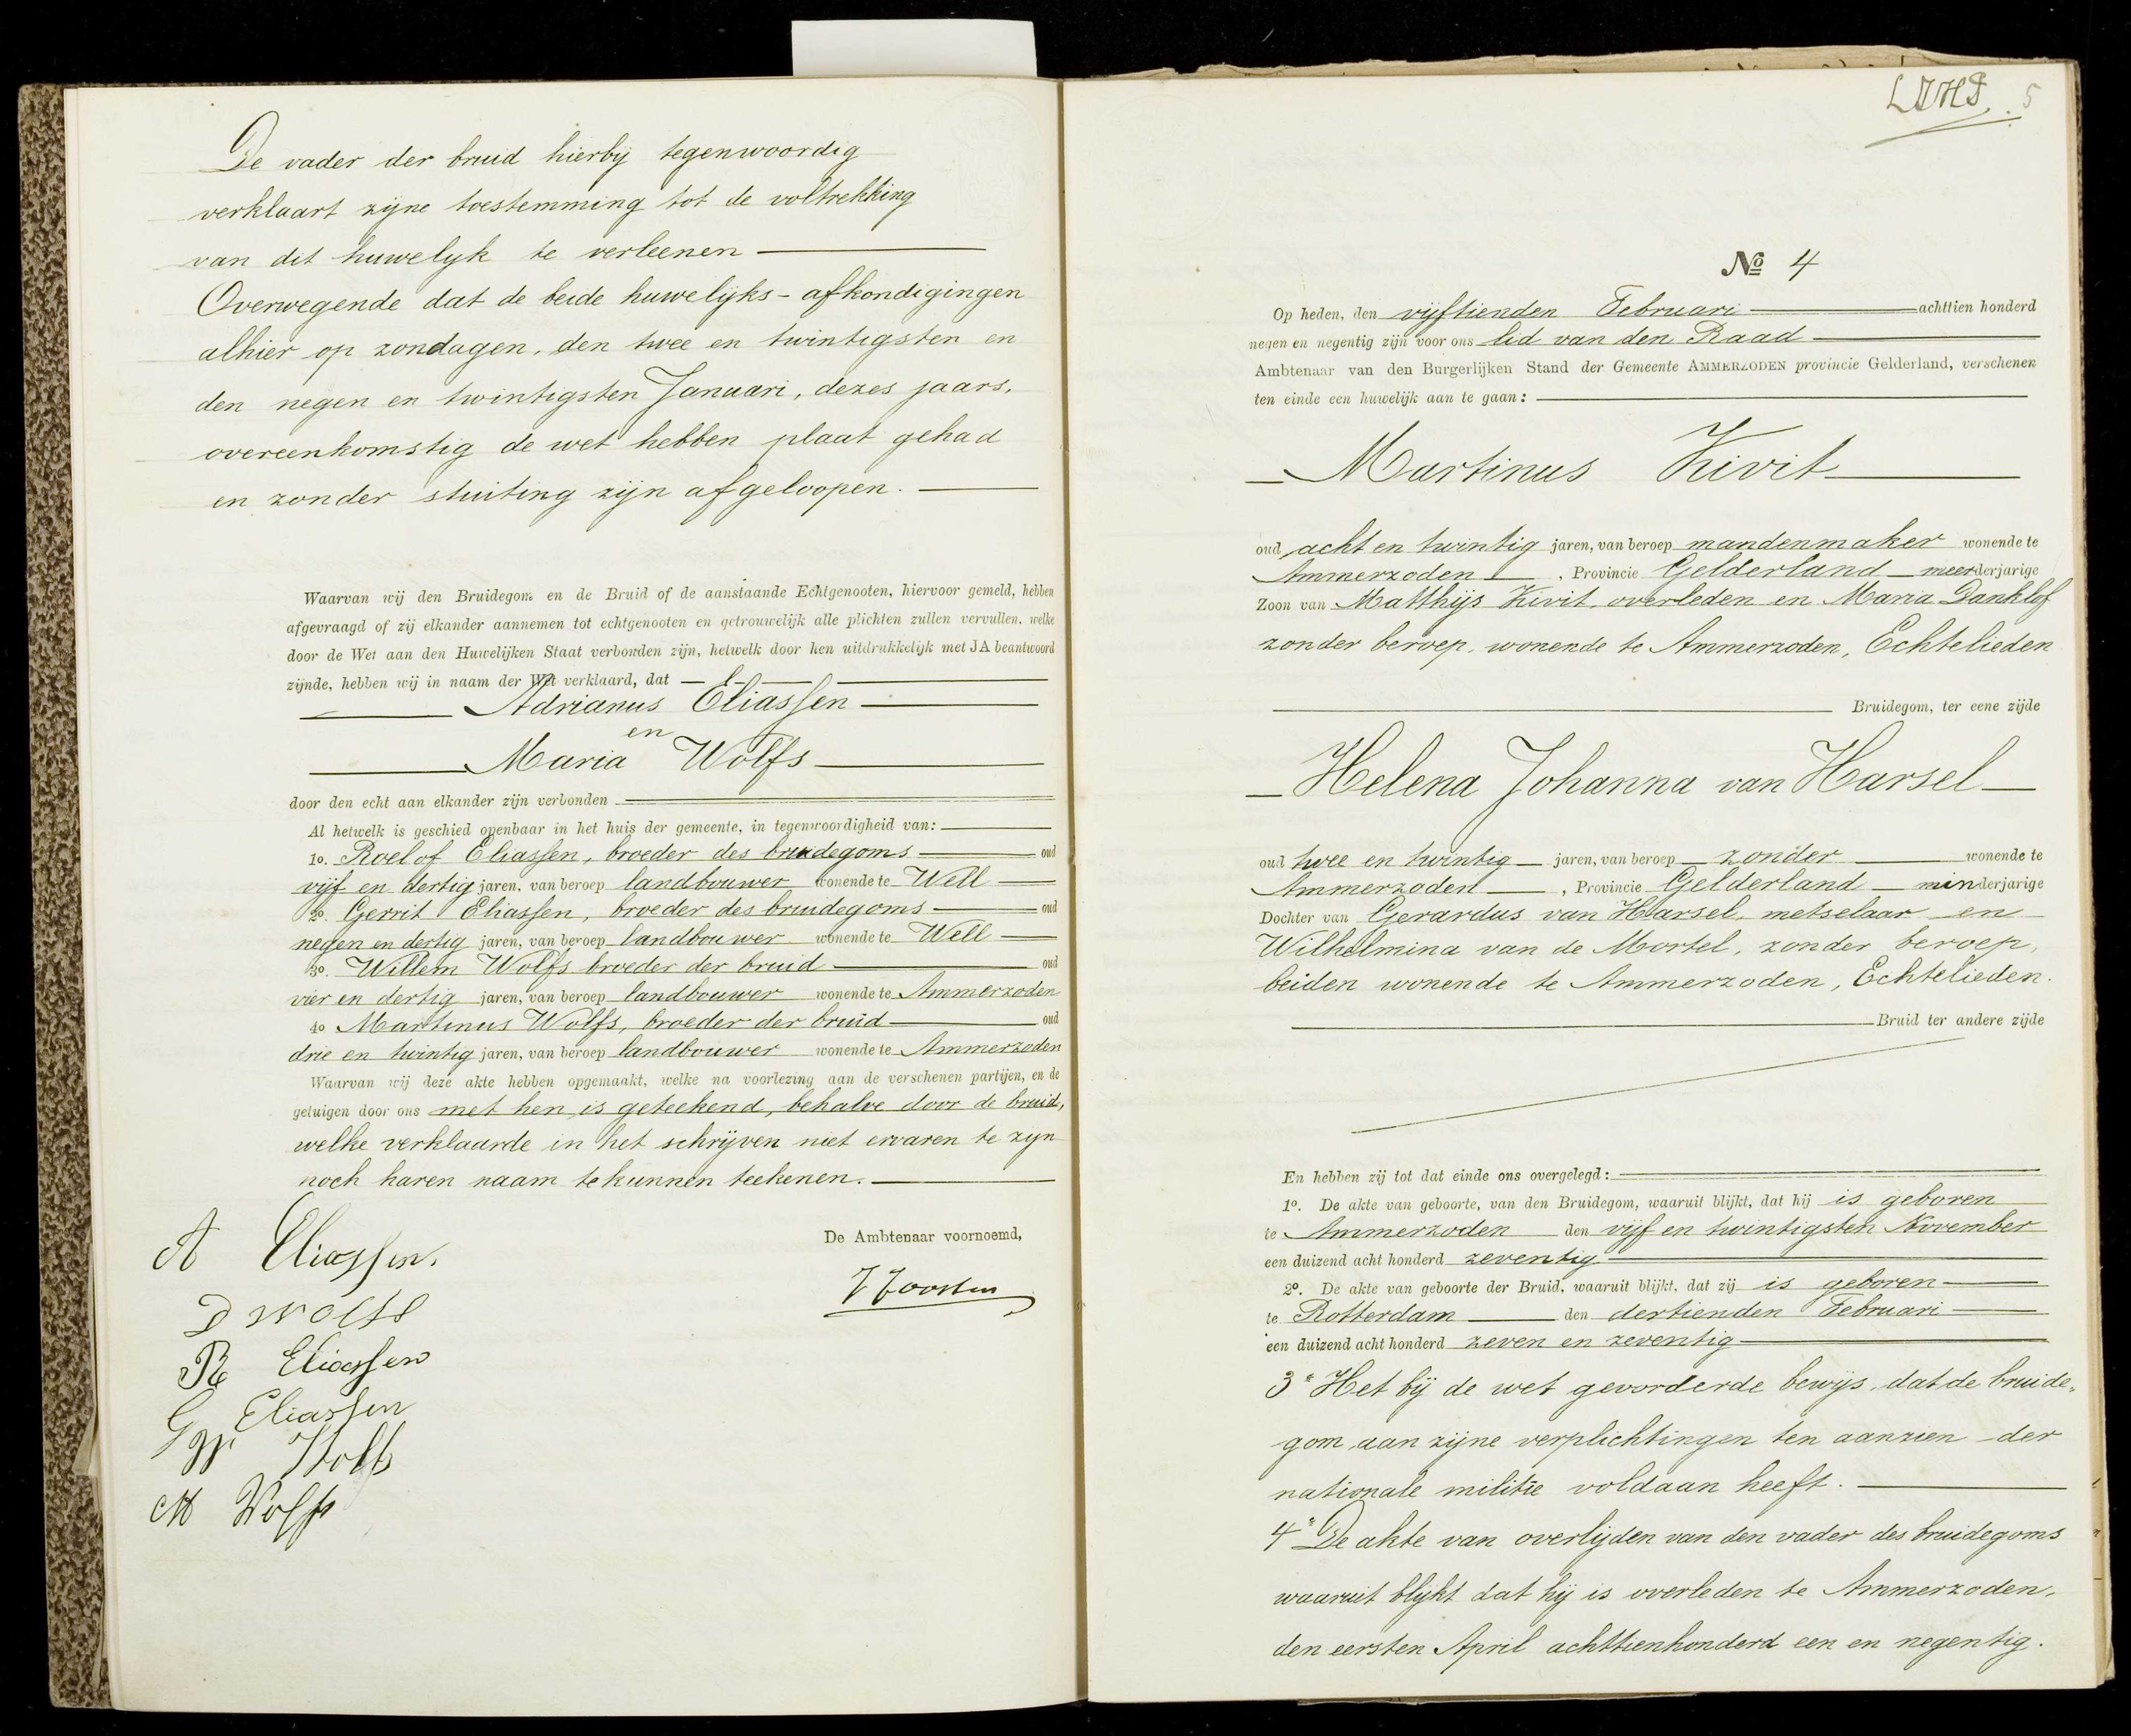 De vader der bruid hierbij tegenwoordig
verklaart zijne toestemming tot de voltrekking
van dit huwelijk te verleenen
Overwegende dat de beide huwelijks-afkondigingen
alhier op zondagen, den twee en twintigsten en
den negen en twintigsten Januari, dezes jaars,
overeenkomstig de wet hebben plaat gehad
en zonder stuiting zijn afgeloopen.
Waarvan wij den Bruidegom en de Bruid of de aanstaande Echtgenooten, hiervoor gemeld, hebben
afgevraagd of zij elkander aannemen tot echtgenooten en getrouwelijk alle plichten zullen vervullen, welke
door de Wet aan den Huwelijken Staat verbonden zijn, hetwelk door hen uitdrukkelijk met JA beantwoord
zijnde, hebben wij in naam der Wet verklaard, dat
Adrianus Eliassen
en
Maria Wolfs
door den echt aan elkander zijn verbonden
Al hetwelk is geschied openbaar in het huis der gemeente, in tegenwoordigheid van:
1o. Roelof Eliassen, broeder des bruidegoms oud
vijf en dertig jaren, van beroep landbouwer wonende te Well
2o. Gerrit Eliassen, broeder des bruidegoms oud
negen en dertig jaren, van beroep landbouwer wonende te Well
3o. Willem Wolfs broeder der bruid oud
vier en dertig jaren, van beroep landbouwer wonende te Ammerzoden
4o Martinus Wolfs, broeder der bruid oud
drie en twintig jaren, van beroep landbouwer wonende te Ammerzoden
Waarvan wij deze akte hebben opgemaakt, welke na voorlezing aan de verschenen partijen, en de
getuigen door ons met hen is geteekend, behalve door de bruid,
welke verklaarde in het schrijven niet ervaren te zijn
noch haren naam te kunnen teekenen.
De Ambtenaar voornoemd,
A Eliassen.
J Joosten
D Wolfs
R Eliassen
G Eliassen
W Wolfs
M Wolfs
5
No 4
Op heden, den vijftienden Februari achttien honderd
negen en negentig zijn voor ons lid van den Raad
Ambtenaar van den Burgerlijken Stand der Gemeente AMMERZODEN provincie Gelderland, verschenen
ten einde een huwelijk aan te gaan:
Martinus Kivit
oud acht en twintig jaren, van beroep mandenmaker wonende te
Ammerzoden, Provincie Gelderland meerderjarige
Zoon van Matthijs Kivit, overleden en Maria Danklof
zonder beroep, wonende te Ammerzoden, Echtelieden
Bruidegom, ter eene zijde
Helena Johanna van Harsel
oud twee en twintig jaren, van beroep zonder wonende te
Ammerzoden, Provincie Gelderland minderjarige
Dochter van Gerardus van Harsel, metselaar en
Wilhelmina van de Mortel, zonder beroep,
beiden wonende te Ammerzoden, Echtelieden.
Bruid ter andere zijde
En hebben zij tot dat einde ons overgelegd:
1o. De akte van geboorte, van den Bruidegom, waaruit blijkt, dat hij is geboren
te Ammerzoden den vijf en twintigsten November
een duizend acht honderd zeventig
2o. De akte van geboorte der Bruid, waaruit blijkt, dat zij is geboren
te Rotterdam den dertienden Februari
een duizend acht honderd zeven en zeventig
3o Het bij de wet gevorderde bewijs, dat de bruide-
gom aan zijne verplichtingen ten aanzien der
nationale militie voldaan heeft.
4o De akte van overlijden van den vader des bruidegoms
waaruit blijkt dat hij is overleden te Ammerzoden,
den eersten April achttienhonderd een en negentig.